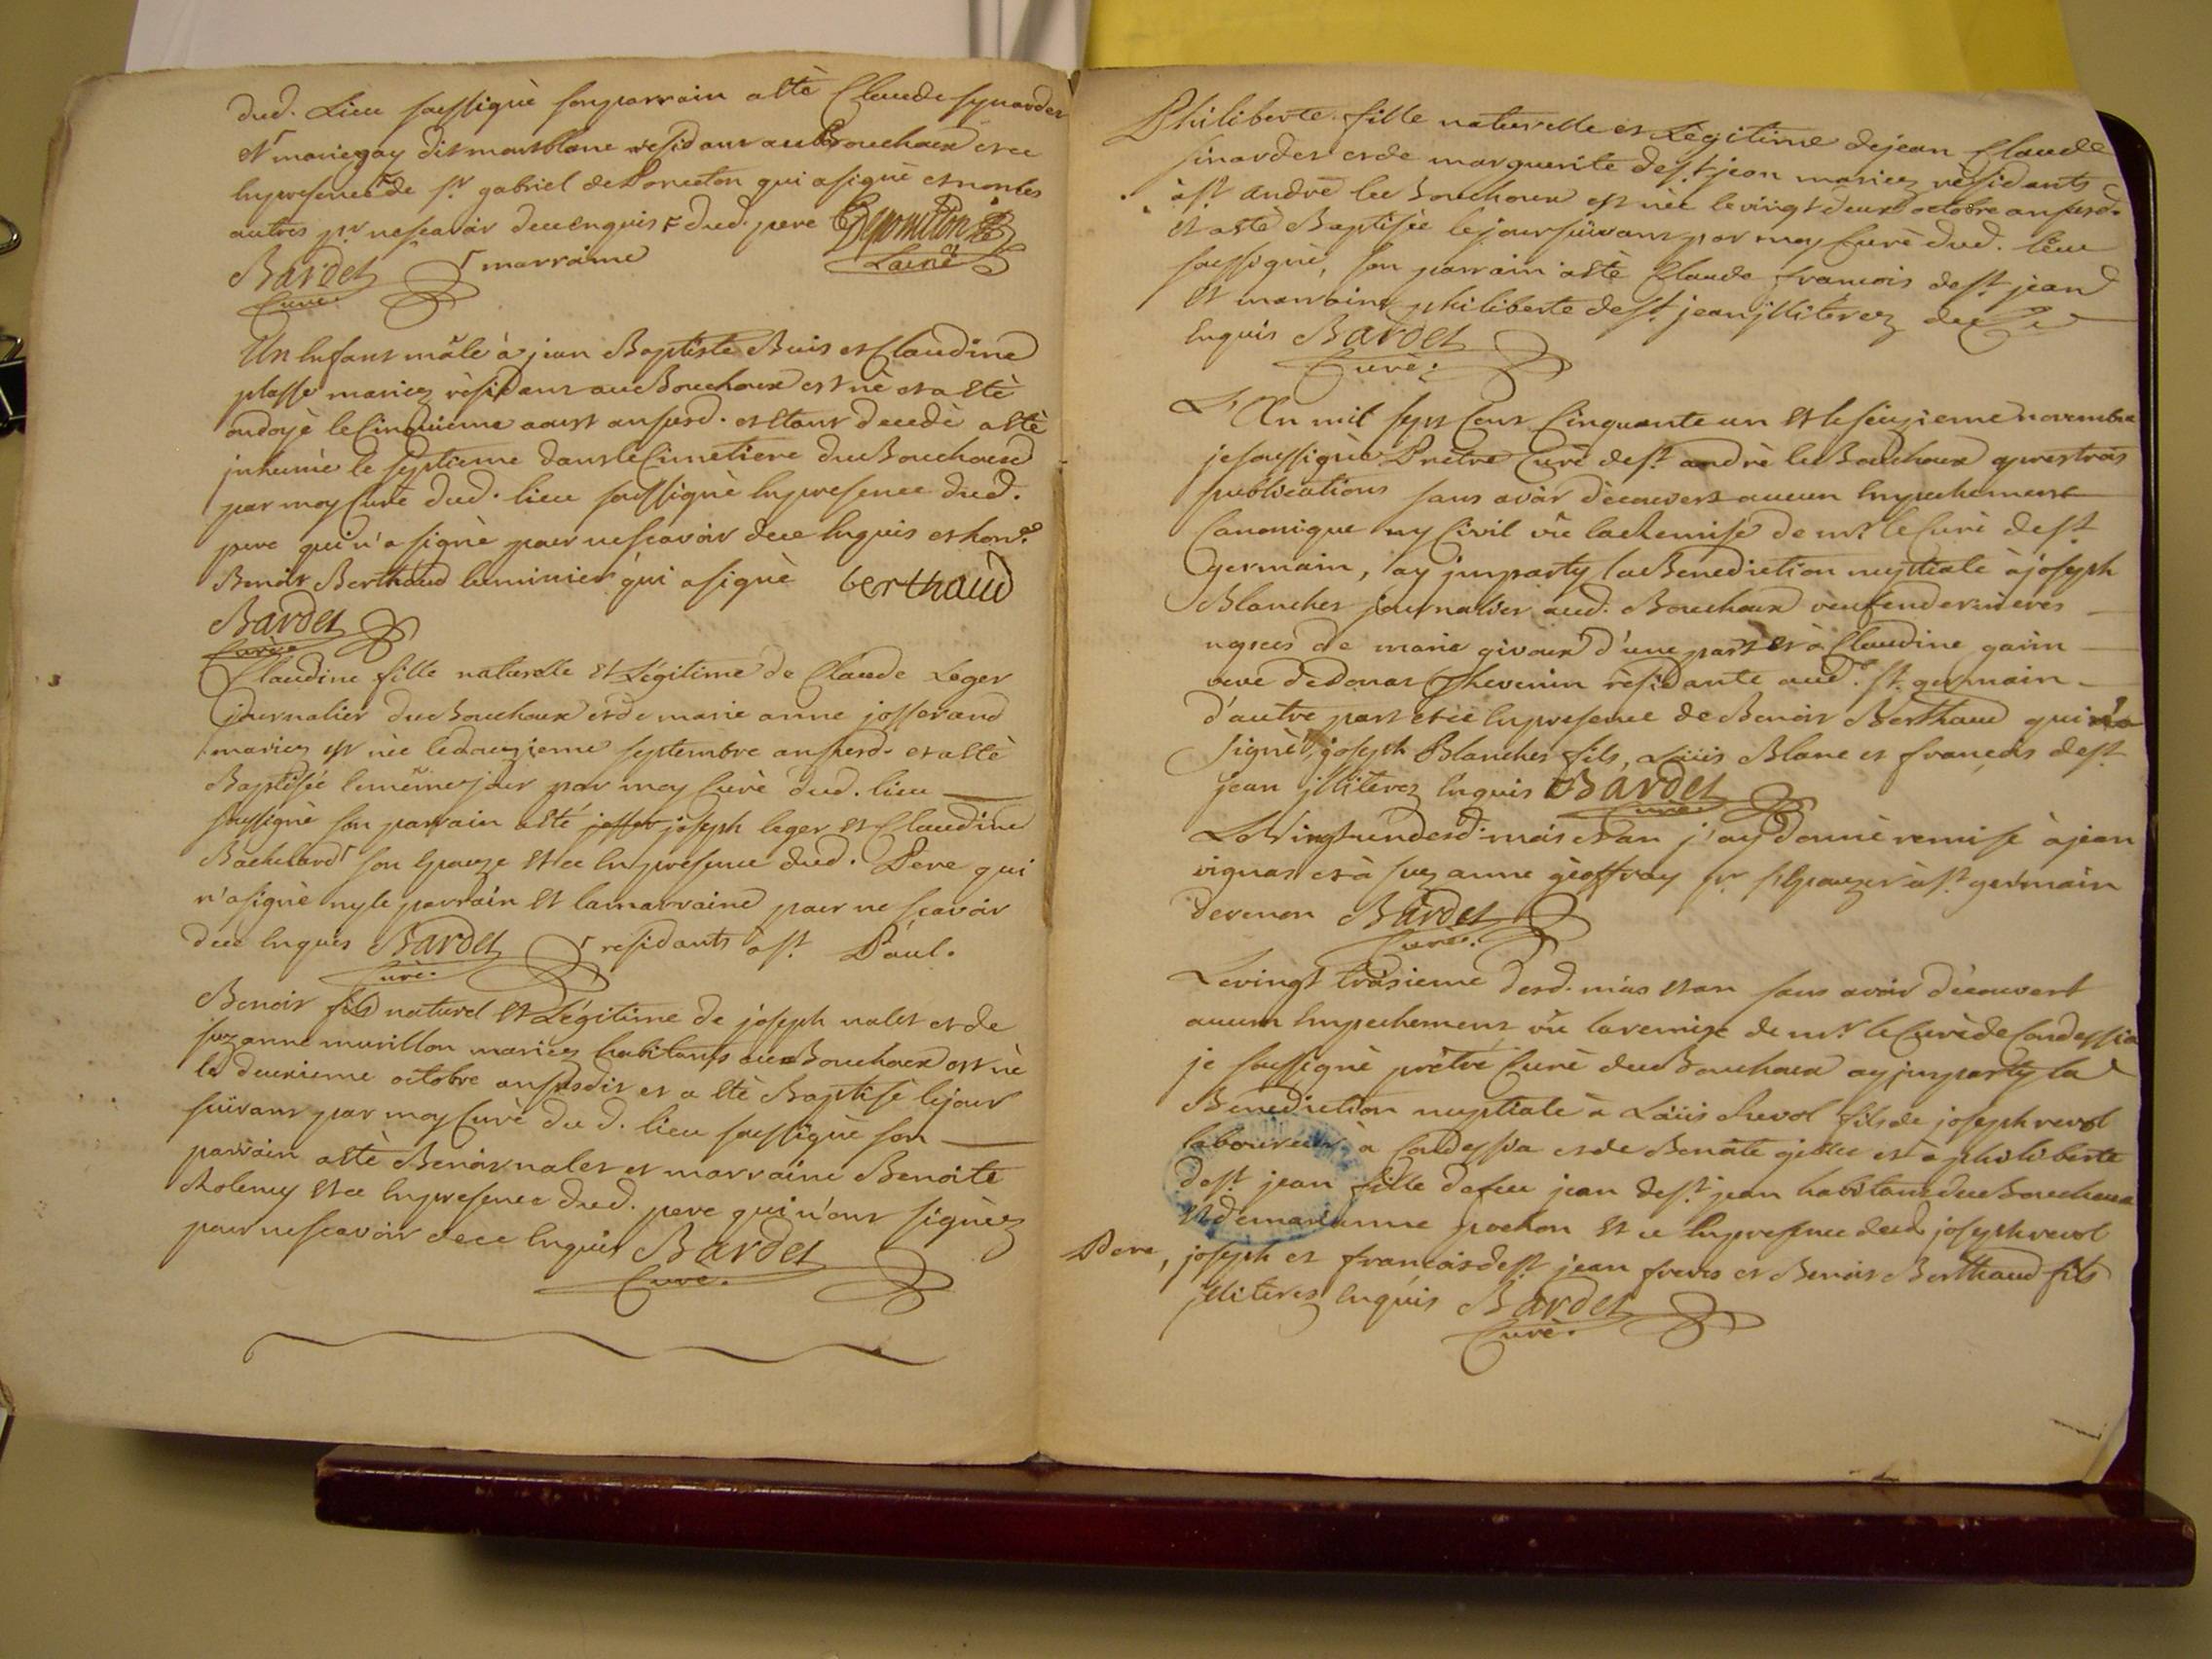 dud. Lieu soussigné son parrain a êtè Claude synardet
et marie gay dit montblanc residant au Bouchoux et ce
En presence de Sr. gabriel de Poncton qui a signé et non les
autres pr. ne scavoir de ce Enquis dud. pere DePoncton
Lainé
Bardet marraine
Curé
Un Enfant mâle à jean Baptiste Buis et Claudine
plasse mariez résidant au Bouchoux est né et a êtè
ondoyé le Cinquieme aoust an susd. et êtant decedé a êtè
inhumé le septieme dans le Cimetiere du Bouchoux
par moy Curé dud. lieu soussigné En presence dud.
pere qui n'a signé pour ne scavoir de ce Enquis et hon.
Benoit Berthaud luminier qui a signé berthaud
Bardet
Curé
Claudine fille naturelle et Légitime de Claude Leger
journalier du Bouchoux et de marie anne josserand
mariez est née le douzieme septembre an susd. et a êtè
Baptisée le même jour par moy Curé dud. lieu
soussigné son parrain a êté josser joseph leger et Claudine
Bachelard son Epouze et ce En presence dud. Pere qui
n'a signé ny le parrain et la marraine pour ne scavoir
de ce Enquis Bardet residants à st. Paul.
Curé.
Benoit fils naturel et Légitime de joseph nalet et de
suzanne murillon mariez habitants au Bouchoux est né
le deuxieme octobre an susdit et a êtè Baptisé le jour
suivant par moy Curé du d. lieu soussigné son
parrain a êtè Benoit nalet et marraine Benoite
Rolemy et ce En presence dud. pere qui n'ont signéz
pour ne scavoir de ce Enquis Bardet
Curé.
Philiberte fille naturelle et Légitime de jean Claude
sinardet et de marguerite de st. jean mariez résidants
à st. andré le Bouchoux est née le vingt deux octobre an susd.
et a êtè Baptisée le jour suivant par moy Curé dud. lieu
soussigné, son parrain a êtè Claude francois de st. jean
et marraine philiberte de st. jean jlliterez de Ce
Enquis Bardet
Curé.
L'An mil sept Cent Cinquante un et le seizieme novembre
je soussigné Prêtre Curé de st. andré le Bouchoux apres trois
publications sans avoir découvert aucun Empechement
Canonique ny Civil vü la Remise de mr. le Curé de st.
germain, ay jmparty la Benediction nuptiale à joseph
Blanchet journalier aud. Bouchoux veuf en dernieres
nopces de marie givoux d'une part et à Claudine gavin
veuve de donat Thevenin résidante aud. st. germain
d'autre part et ce En presence de Benoit Berthaud qui
signé joseph Blanchet fils, Loüis Blanc et francois de st.
jean jlliterez Enquis Bardet
Curé
Le Vingt un desd. mois et an j'ay donné remise à jean
vignat et à suzanne géoffray pr. Epouzer à st. germain
de renon Bardet
Curé.
Le vingt troisieme desd. mois et an sans avoir découvert
aucun Empechement, vü la remise de mr. le Curé de Condessia
je soussigné prêtre Curé du Bouchoux ay jmparty la
Benediction nuptiale à Loüis Revol fils de joseph revol
laboureur à Condessia et de Benoite gillet et à philiberte
de st. jean fille de feu jean de st. jean habitant du Bouchoux
et de marianne pochon et ce En presence dud. joseph revol
Pere, joseph et francois de st. jean freres et Benoit Berthaud fils
jlliterez Enquis Bardet
Curé.